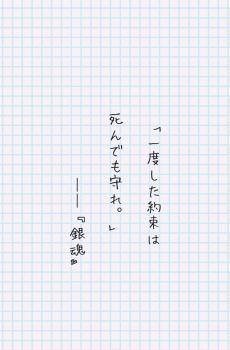 「一度した約束は
死んでも守れ。」
——『銀魂』